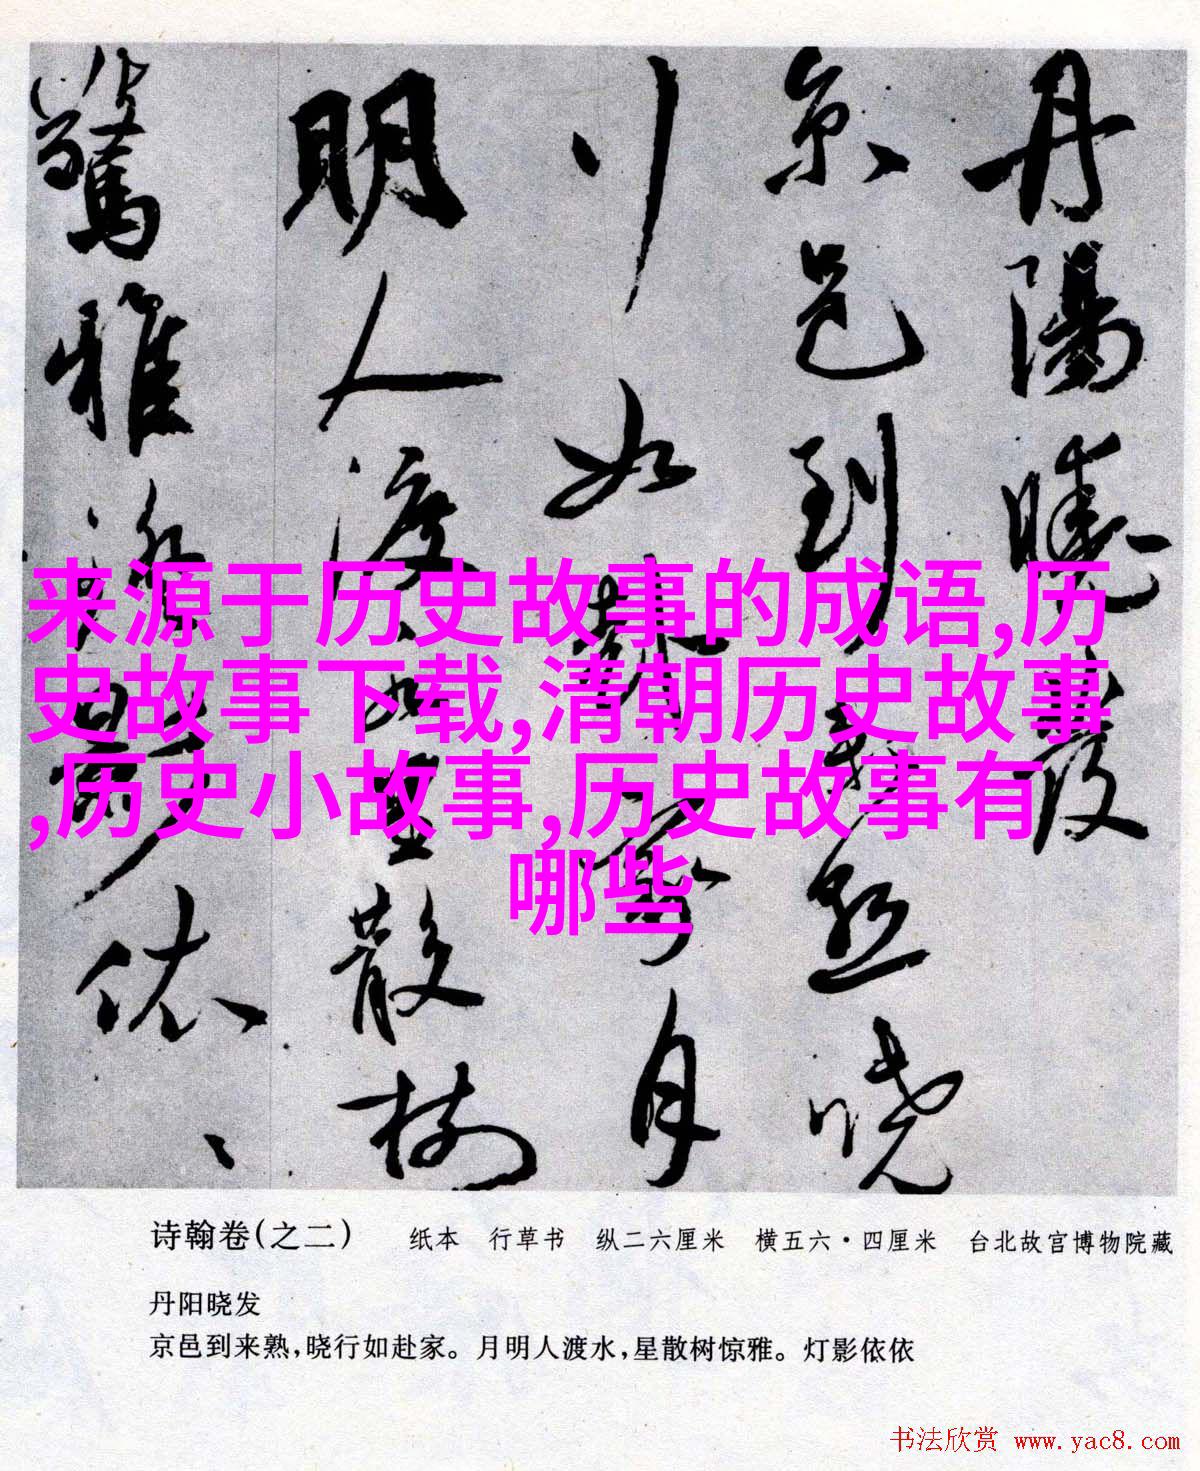 丹陽曉發
京邑到來熟曉
行如赴家月
明人渡水星散樹
驚雅燈影依依
来源于历史故事的成语,历
史故事下载,清朝历史故事
,历史小故事,历史故事有
哪些
诗翰卷(之二) 纸本 行草书 纵二六厘米 横五六·四厘米 台北故宫博物院藏
丹阳晓发
京邑到来熟,晓行如赴家。月明人渡水,星散树惊雅。灯影依依
书法欣赏 www.yac8.com